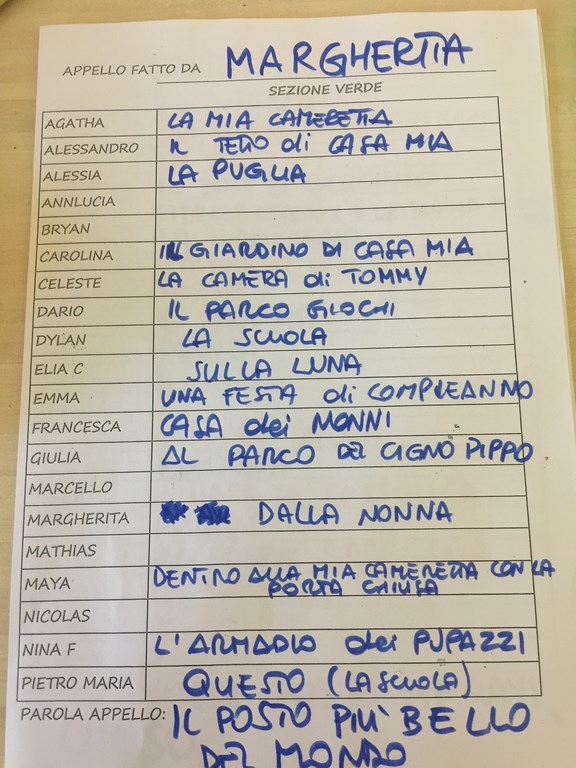 APPELLO FATTO DA MARGHERTIA
SEZIONE VERDE
AGATHA LA MIA CAMERETTA
ALESSANDRO IL TETTO di CASA MIA
ALESSIA LA PUGLIA
ANNLUCIA
BRYAN
CAROLINA IL GIARDINO DI CASA MIA
CELESTE LA CAMERA di TOMMY
DARIO IL PARCO GIOCHI
DYLAN LA SCUOLA
ELIA C SULLA LUNA
EMMA UNA FESTA di COMPLEANNO
FRANCESCA CASA dei NONNI
GIULIA AL PARCO DEL CIGNO PIPPO
MARCELLO
MARGHERITA DALLA NONNA
MATHIAS
MAYA DENTRO ALLA MIA CAMERETTA CON LA
PORTA CHIUSA
NICOLAS
NINA F L'ARMADIO dei PUPAZZI
PIETRO MARIA QUESTO (LA SCUOLA)
PAROLA APPELLO: IL POSTO PIÙ BELLO
DEL MONDO